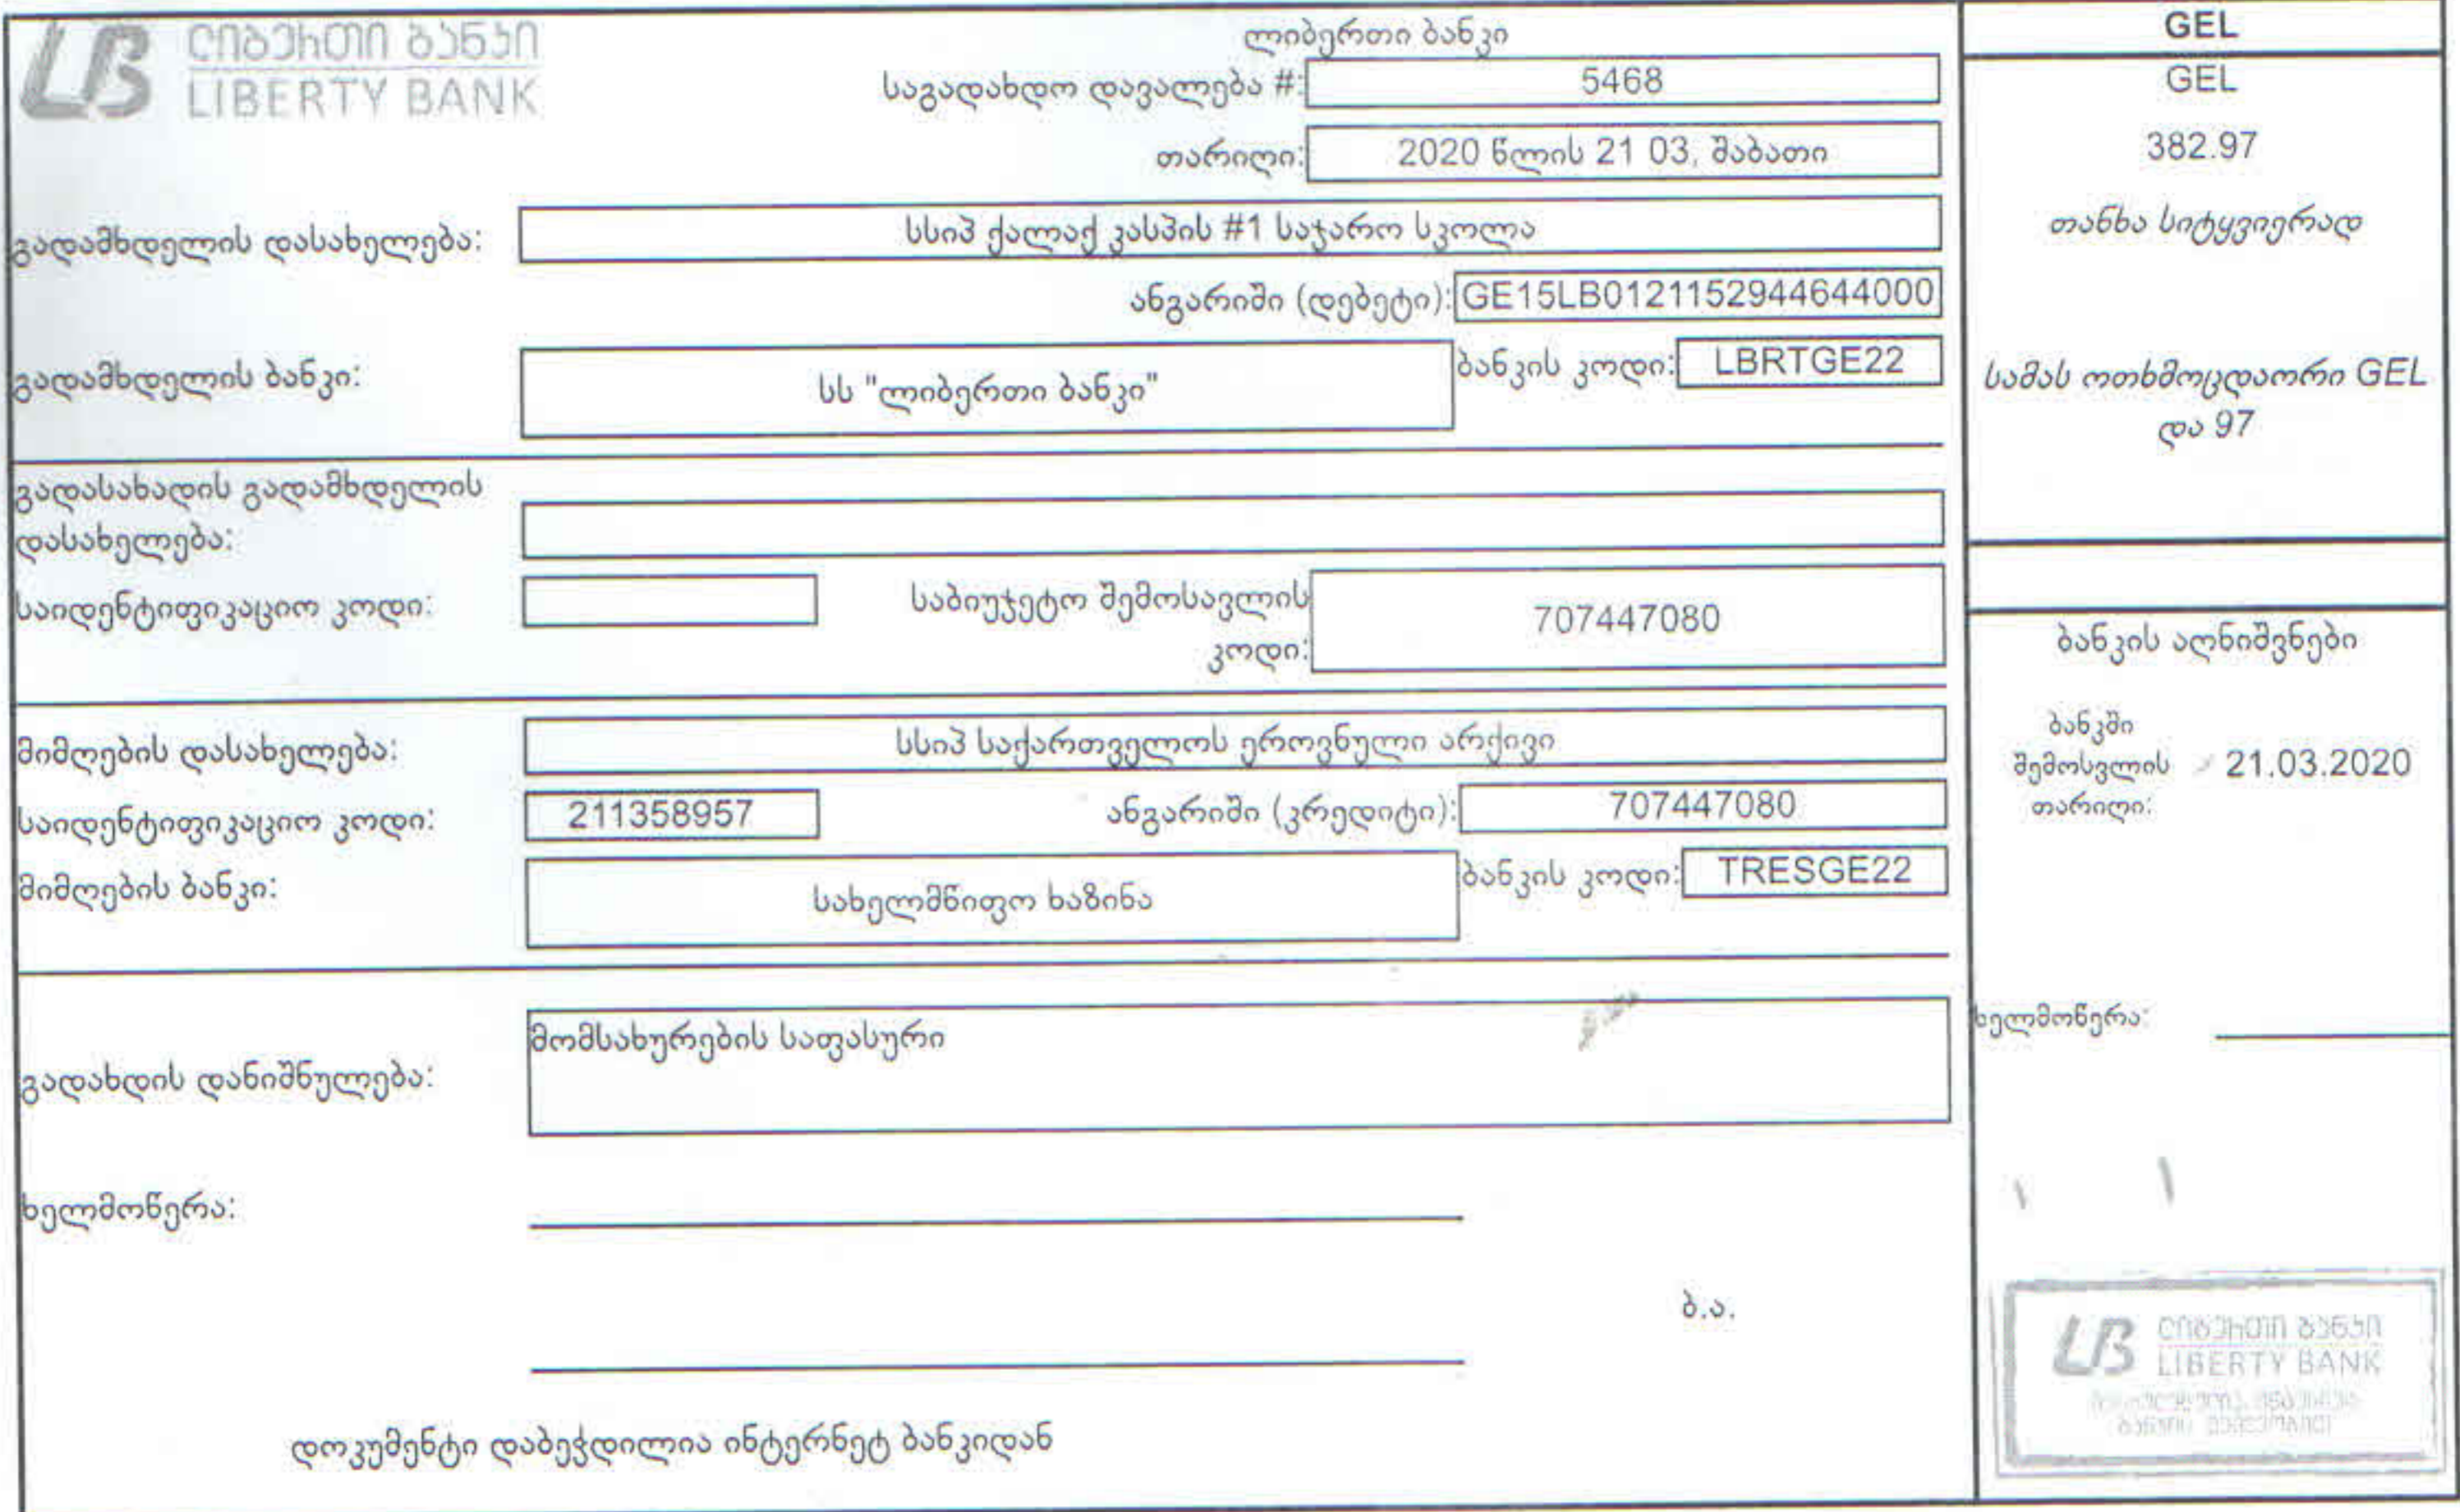 ლიბერთი ბანკი
LIBERTY BANK
ლიბერთი ბანკი
საგადახდო დავალება #: 5468
თარიღი: 2020 წლის 21 03, შაბათი
გადამხდელის დასახელება: სსიპ ქალაქ კასპის #1 საჯარო სკოლა
ანგარიში (დებეტი): GE15LB0121152944644000
გადამხდელის ბანკი: სს "ლიბერთი ბანკი" ბანკის კოდი: LBRTGE22
გადასახადის გადამხდელის
დასახელება:
საიდენტიფიკაციო კოდი: საბიუჯეტო შემოსავლის
კოდი: 707447080
მიმღების დასახელება: სსიპ საქართველოს ეროვნული არქივი
საიდენტიფიკაციო კოდი: 211358957 ანგარიში (კრედიტი): 707447080
მიმღების ბანკი: სახელმწიფო ხაზინა ბანკის კოდი: TRESGE22
გადახდის დანიშნულება: მომსახურების საფასური
ხელმოწერა:
ბ.ა.
დოკუმენტი დაბეჭდილია ინტერნეტ ბანკიდან
GEL
GEL
382.97
თანხა სიტყვიერად
სამას ოთხმოცდაორი GEL
და 97
ბანკის აღნიშვნები
ბანკში
შემოსვლის 21.03.2020
თარიღი:
ხელმოწერა:
LB ლიბერთი ბანკი
LIBERTY BANK